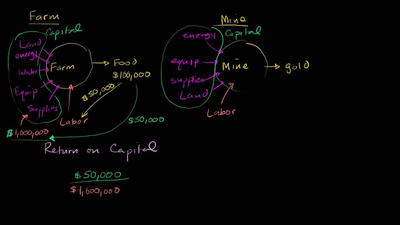 Farm
Capital
Land
energy
Water
Equip
Supplies
Farm
Food
$100,000
$50,000
Labor
$1,000,000
$50,000
Return on Capital
$50,000
$1,000,000
Mine
Capital
energy
equip
supplies
Land
Mine
gold
Labor